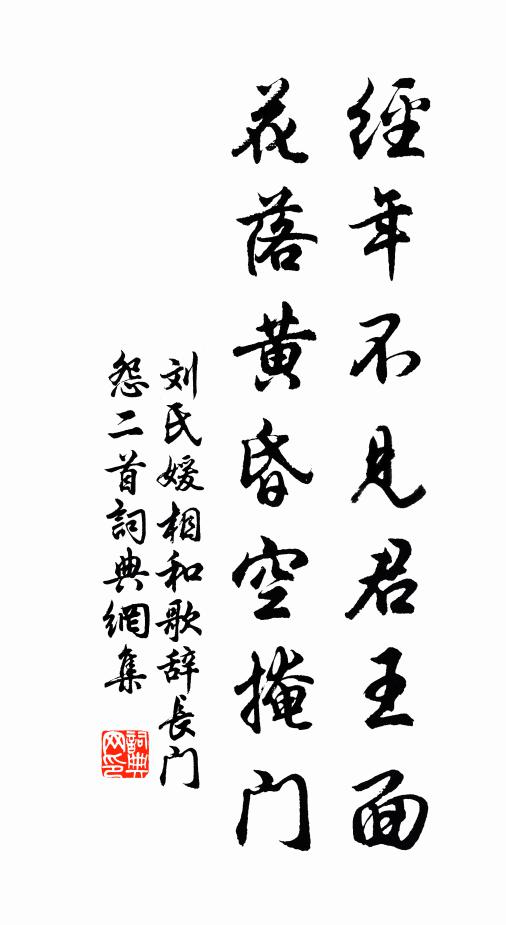 經年不见君王面
花落黄昏空掩门
刘氏媛相和歌辞長门
怨二首詞典網集
詞典
网印